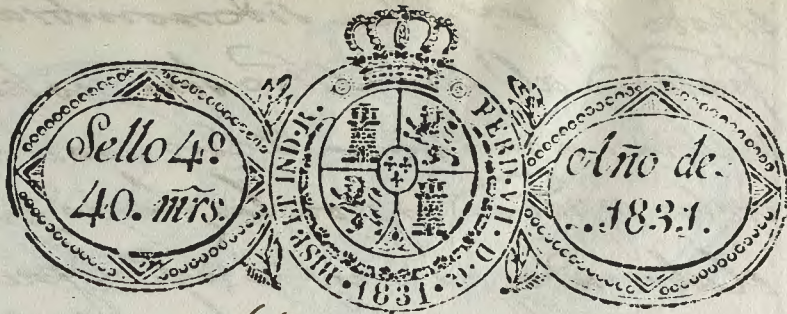 Sello 4º
40. mrs.
FERD·VII·D·G·HISP·ET IND·R.
·1831·
Año de.
..1831.